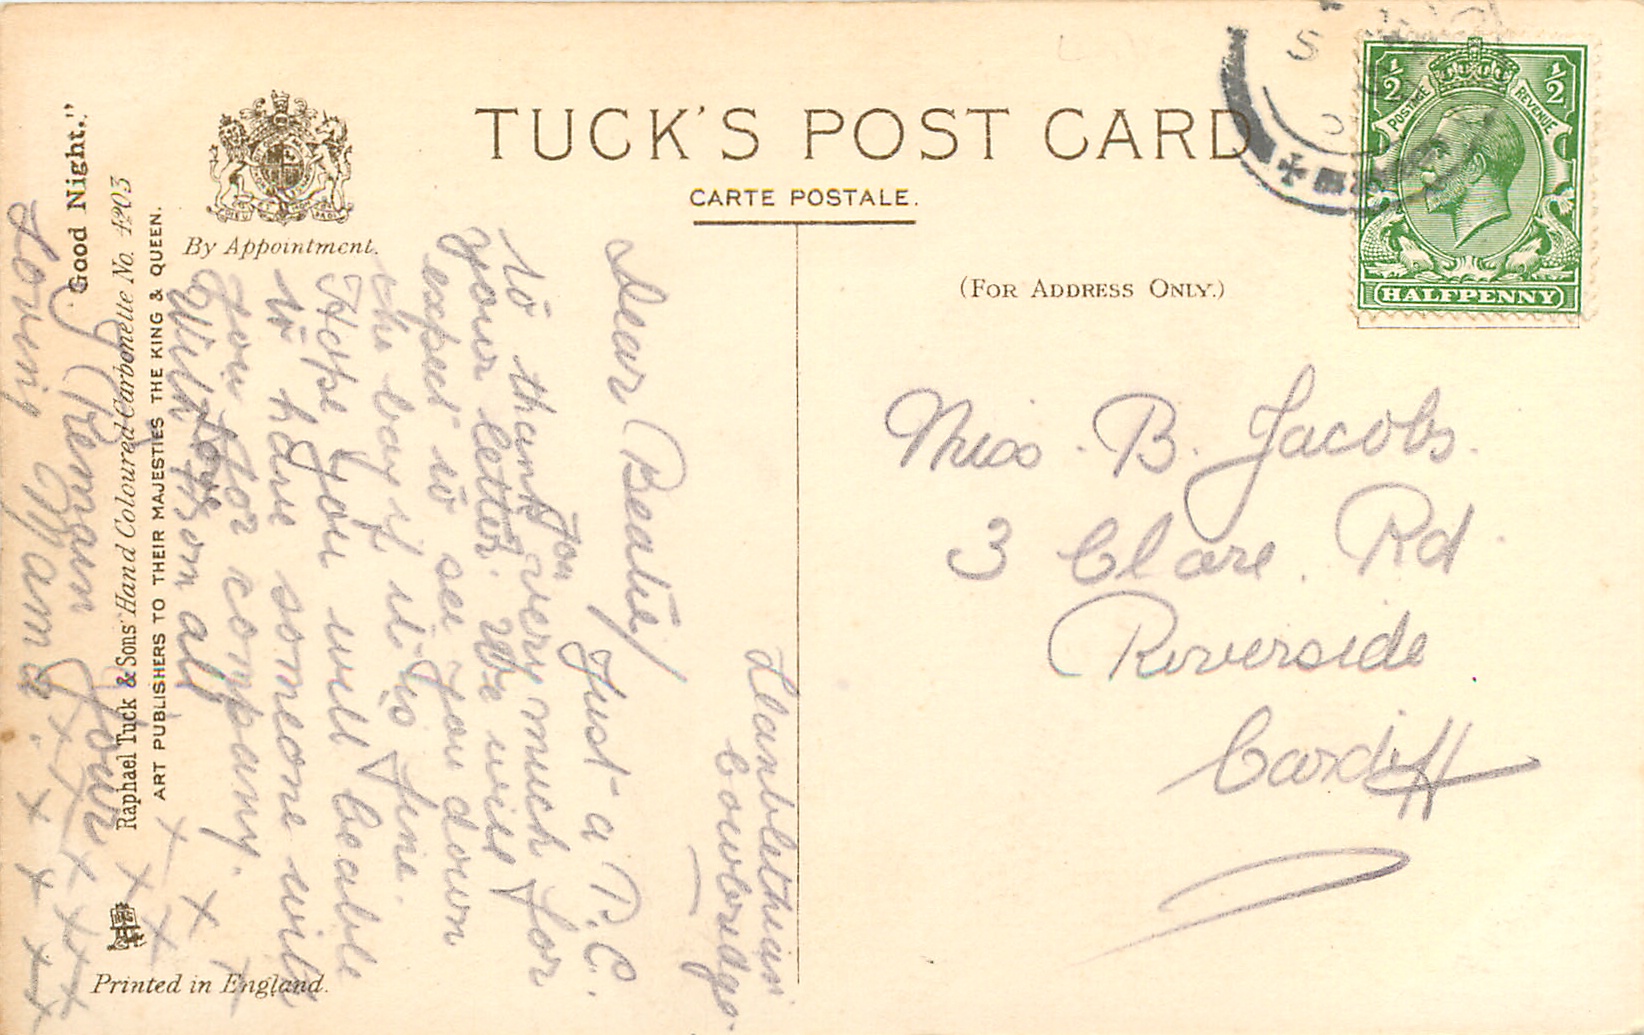 TUCK'S POST CARD
CARTE POSTALE.
(FOR ADDRESS ONLY.)
By Appointment.
POSTAGE
REVENUE
½
½
HALFPENNY
Miss. B. Jacobs.
3 Clare. Rd
Riverside
Cardiff
Llanblethian
Cowbridge.
Dear Beatie/
Just a P.C.
to thank you very much for
your letter. We will
expect to see you down
the bay if it is fine.
Hope you will be able
to have someone with
you for company.
With love from all
I remain Your
Loving Mama.
x x x x x x x x x
"Good Night."
Raphael Tuck & Sons' Hand Coloured Carbonette No. 4203
ART PUBLISHERS TO THEIR MAJESTIES THE KING & QUEEN.
Printed in England.